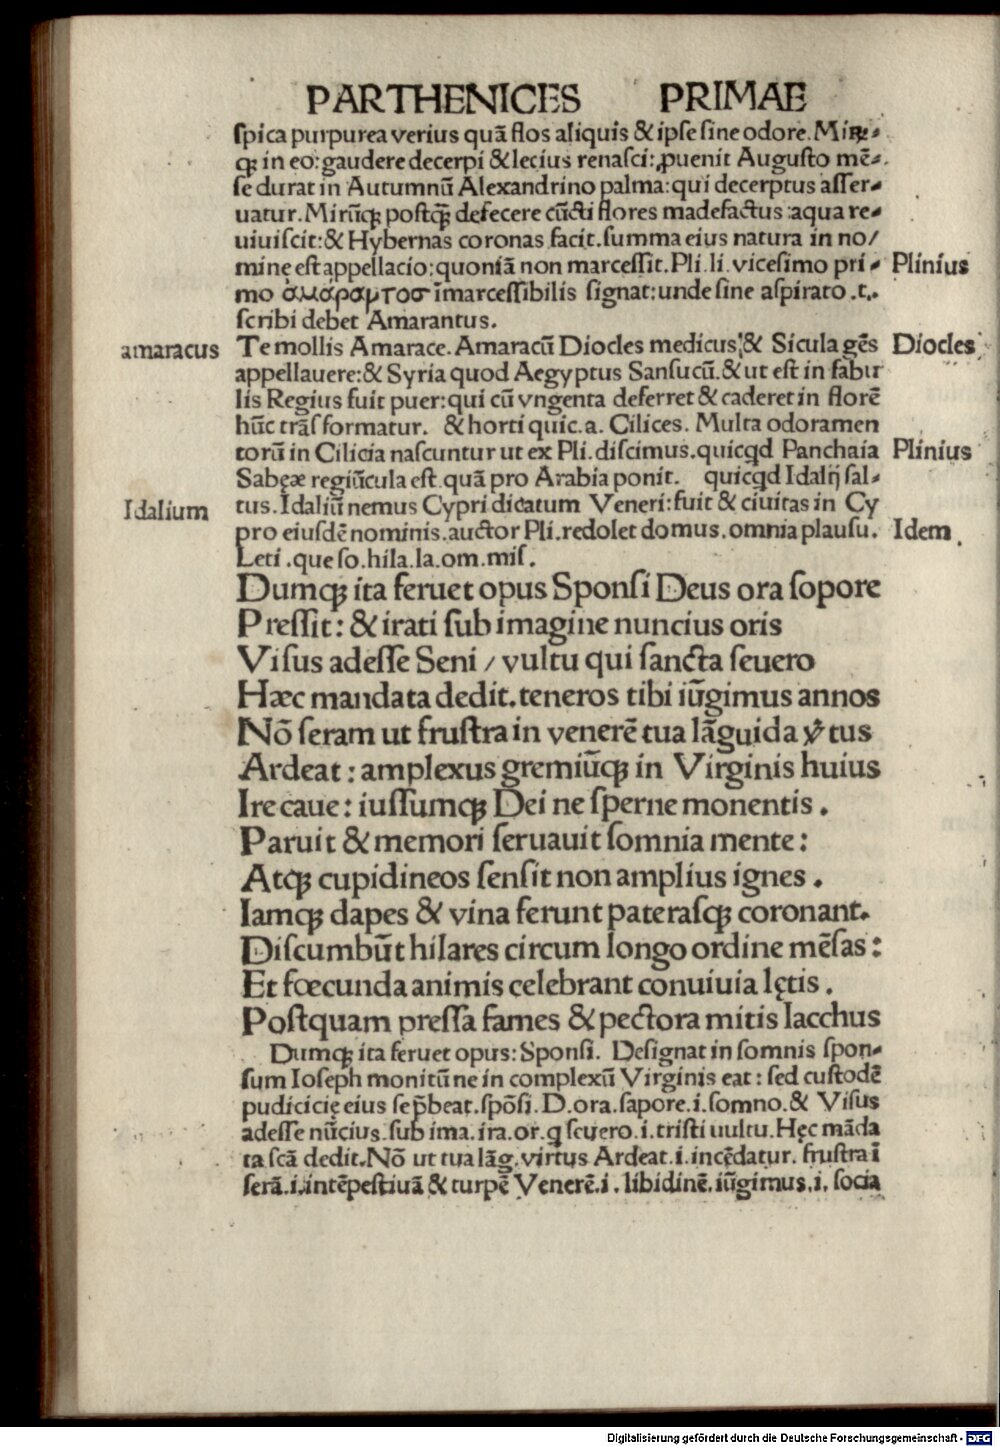 PARTHENICES PRIMAE
ſpica purpurea verius quã flos aliquis & ipſe ſine odore. Mirũ-
qꝫ in eo: gaudere decerpi & lęcius renaſci: ꝓuenit Auguſto mẽ-
ſe durat in Autumnũ Alexandrino palma: qui decerptus aſſer-
uatur. Mirũqꝫ poſtqꝫ̃ defecere cũcti flores madefactus aqua re-
uiuiſcit: & Hybernas coronas facit. ſumma eius natura in no/
mine eſt appellacio: quoniã non marceſſit. Pli. li. vicesimo pri- Plinius
mo ἀμάραντοσ ĩmarceſſibilis ſignat: unde ſine aſpirato .t.
ſcribi debet Amarantus.
amaracus Te mollis Amarace. Amaracũ Diocles medicus, & Sicula gẽs Diocles
appellauere: & Syria quod Aegyptus Sanſucũ. & ut eſt in fabu
lis Regius fuit puer: qui cũ vngenta deferret & caderet in florẽ
hũc trãſformatur. & horti quic. a. Cilices. Multa odoramen
torũ in Cilicia naſcuntur ut ex Pli. diſcimus. quicq̇d Panchaia Plinius
Sabęæ regiũcula eſt. quã pro Arabia ponit. quicq̇d Idalij ſal-
Idalium tus. Idaliũ nemus Cypri dicatum Veneri: fuit & ciuitas in Cy
pro eiuſdẽ nominis. auctor Pli. redolet domus. omnia plauſu. Idem
Leti. que ſo. hila. la. om. miſ.
Dumqꝫ ita feruet opus Sponſi Deus ora ſopore
Preſſit: & irati ſub imagine nuncius oris
Viſus adeſſe Seni / vultu qui ſancta ſeuero
Hæc mandata dedit. teneros tibi iũgimus annos
Nõ ſeram ut fruſtra in venerẽ tua lãguida v̾tus
Ardeat: amplexus gremiũqꝫ in Virginis huius
Ire caue: iuſſumqꝫ Dei ne ſperne monentis.
Paruit & memori ſeruauit ſomnia mente:
Atqꝫ cupidineos ſenſit non amplius ignes.
Iamqꝫ dapes & vina ferunt pateraſqꝫ coronant.
Diſcumbũt hilares circum longo ordine mẽſas:
Et fœcunda animis celebrant conuiuia lętis.
Poſtquam preſſa fames & pectora mitis Iacchus
Dumqꝫ ita feruet opus: Sponſi. Deſignat in ſomnis ſpon-
ſum Ioſeph monitũ ne in complexũ Virginis eat: ſed cuſtodẽ
pudicicię eius ſe p̃beat. ſpõſi. D. ora. ſapore. i. ſomno. & Viſus
adeſſe nũcius. ſub ima. ira. or. q ſeuero. i. triſti uultu. Hęc mãda
ta ſcã dedit. Nõ ut tua lãg. virtus Ardeat. i. incẽdatur. fruſtra ĩ
ſerã. i. intẽpeſtiuã & turpẽ Venerẽ. i. libidinẽ. iũgimus. i. ſocia
Digitalisierung gefördert durch die Deutsche Forschungsgemeinschaft - DFG